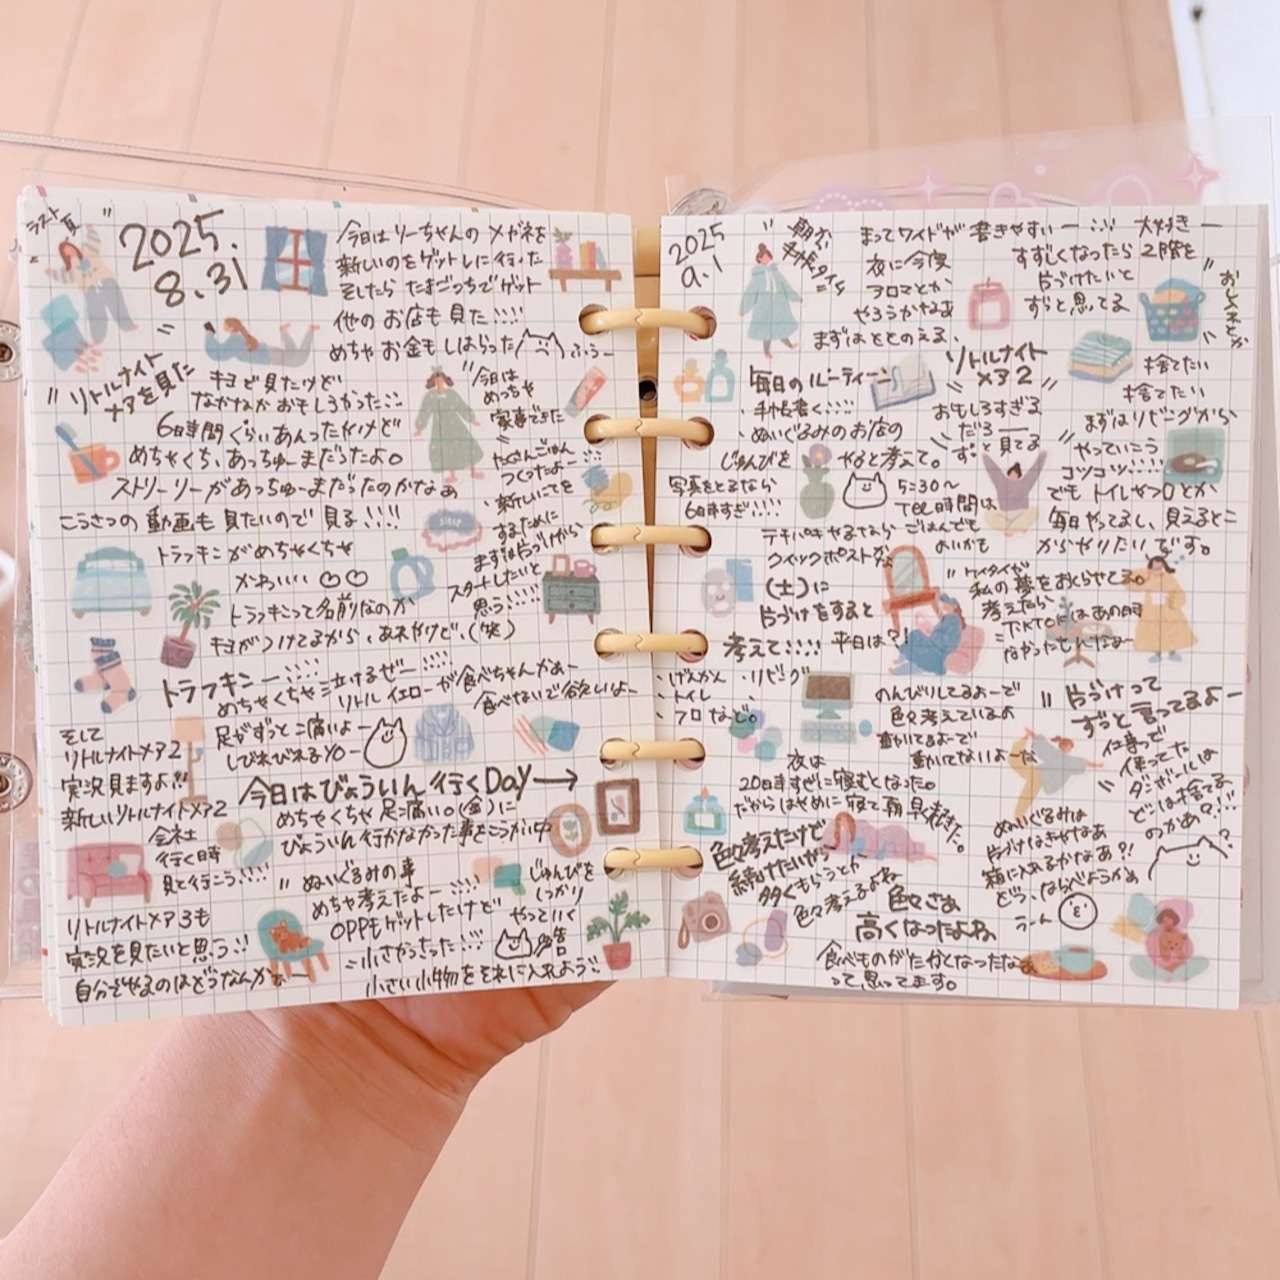 ラスト夏
2025.
8.31
今日はりーちゃんのメガネを
新しいのをゲットしに行った
そしたら たまごっちでゲット
他のお店も見た
めちゃ お金も しはらった
ふぅー
"リトルナイト
メアを見た"
キヨで見たけど
なかなかおもしろかった
6日時間ぐらいあんったけど
めちゃくち、あっちゅーまだったよ。
ストリーリーがあっちゅーまだったのかなぁ
こうさつの動画も見たいので見る!!!!
"今日は
めっちゃ
家事できた
たくさんごはん
つくったよー
新しいにてを
するために
まずは片づけから
スタートしたいと
思う
SLEEP
トラフキンがめちゃくちゃ
かわいい ♡♡
トラフキンって名前なのか
キヨがつけてるから、あれやけど、(笑)
トラフキンー
めちゃくちゃ泣けるぜー
リトルイエローが食べちゃんかぁー
食べないで欲しいよー
そして
リトルナイトメア2
実況見ますよ!!
新しいリトルナイトメア2
会社
行く時
見て行こう!!!!
リトルナイトメア3も
実況を見たいと思う
自分でやるのはどうなんかなー
足がずっと痛いよー
しびれびれるYOー
今日はびょういん行くDay→
めちゃくちゃ足痛い。(金)に
びょういん行かなかった事をこうかい中
"ぬいぐるみの事
めちゃ考えたよー
OPPもゲットしたけど
小さかったった
小さい小物をそれに入れよう
じゅんびを
しっかり
やっていく
2025
9.1
"朝から
手帳タイム
まってワイドが書きやすいー 大好きー
夜に今度
アロマとか
やろうかなぁ
まずはととのえる、
すずしくなったら2階を
片づけたいと
ずっと思ってる
"おしゃれとか
毎日のルーティーン
・手帳書く
・ぬいぐるみのお店の
じゅんびを
やると考えて。
写真をとるなら
6日時すぎ!!!!
5:30~
TEL時間は
ごはんでも
よいかも
リトルナイト
メア2
おもしろすぎる
だろー
ずっと見てる
捨てたい
捨てたい
まずはリビングから
やっていこう
コツコツ
でもトイレやフロとか
毎日やってるし、見えるとこ
からやりたいです。
テキパキやるなら
クイックポストかな
(土)に
片づけをすると
考えて 平日は?!
・げんかん ・リビング
・トイレ
・フロなど。
"ケイタイが
私の夢をおくらせてる。
考えたら
TIKTOKはあの時
なかったもんなー
のんびりしてるよーで
色々考えているよ
動いてるよーで
動いてないよーな
"片づけって
ずっと言ってるよー
仕事で
使ってた
ダンボールは
どこは捨てる
のかぁ?!
夜は
20日時すぎに寝むとなった。
だからはやめに寝て朝早起きた。
色々考えたけど
続けたいがら
多くもらうとか
色々考えるよね
色々さぁ
高くなったよね
食べものがたかくなったなぁ
って思ってます。
ぬいぐるみは
片づけなきゃなあ
箱に入れるかなあ?!
どう、ならべようかぁ
うーん